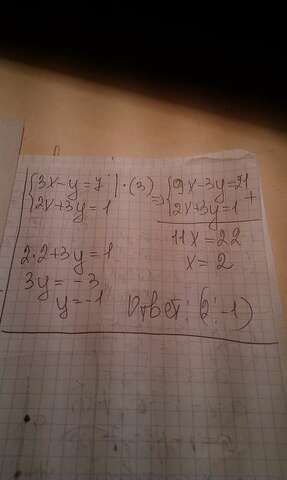 {3x-y=7 | ·(3) => {9x-3y=21 +
{2x+3y=1 {2x+3y=1
11x=22
x=2
2·2+3y=1
3y=-3
y=-1
Ответ: (2;-1)